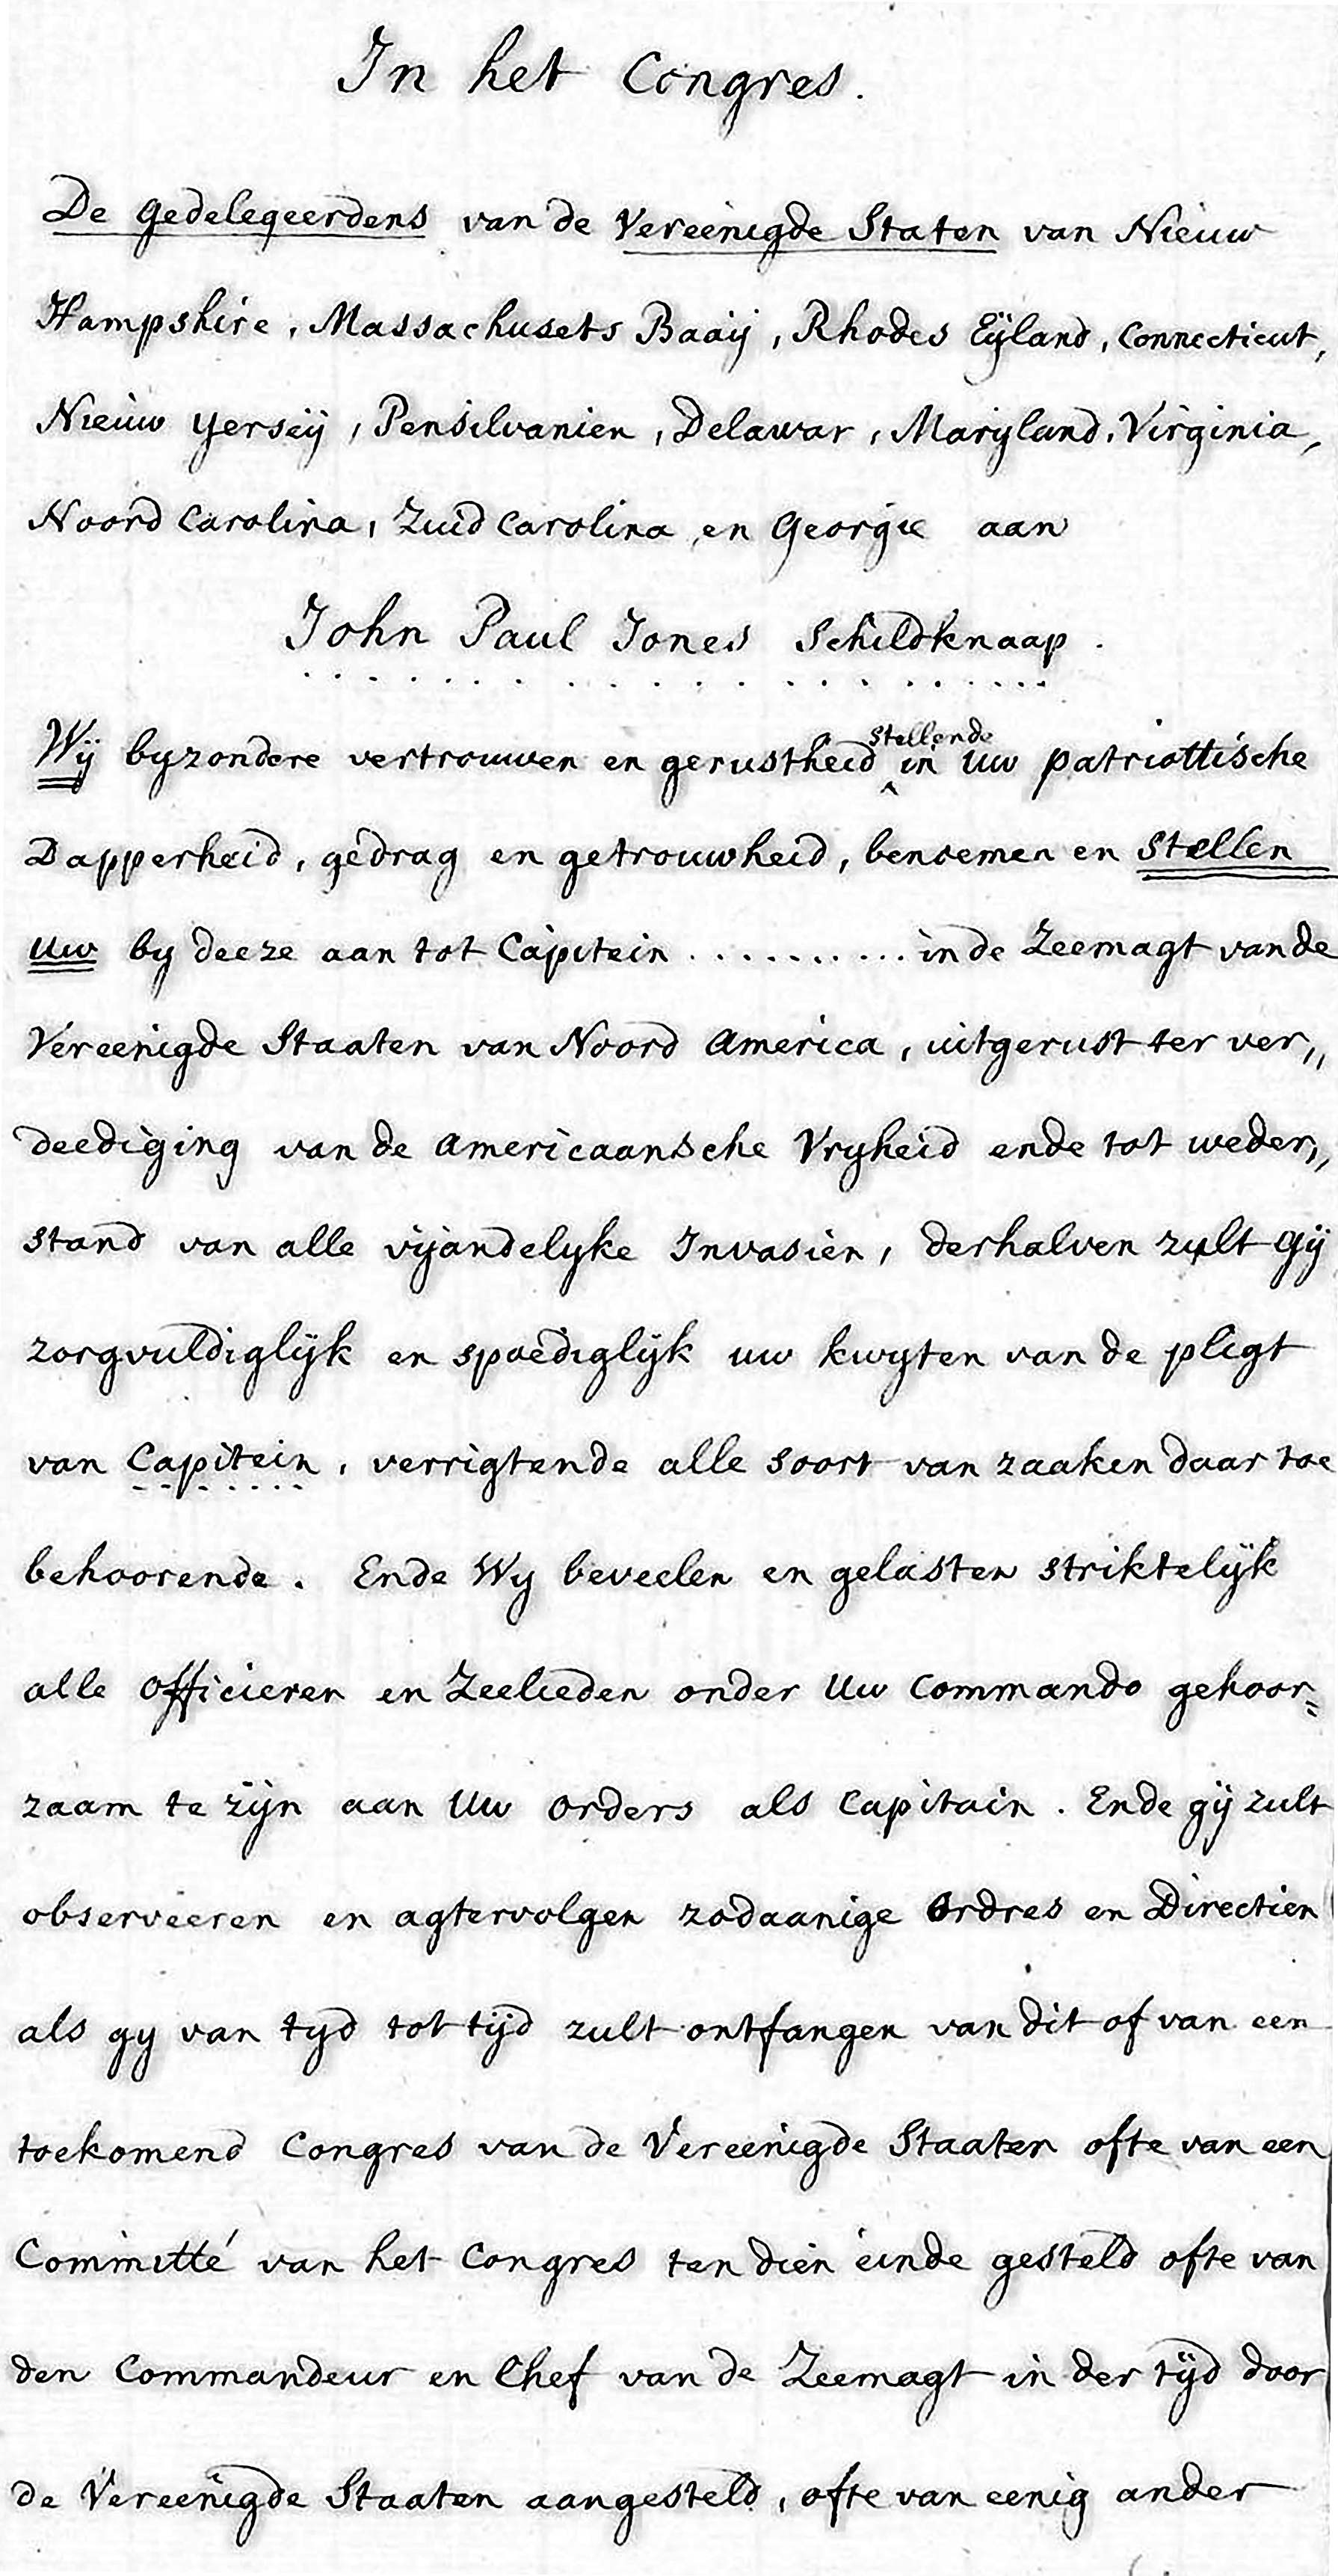 In het Congres.
De Gedelegeerdens van de Vereenigde Staten van Nieuw
Hampshire, Massachusets Baaij, Rhodes Eijland, Connecticut,
Nieuw Yerseij, Pensilvanien, Delawar, Marijland, Virginia,
Noord Carolina, Zuid Carolina, en Georgie aan
John Paul Jones Schildknaap.
. . . . . . . . . . . . . . . . . .
stellende
Wij byzondere vertrouwen en gerustheid ^ in uw patriottische
Dapperheid, gedrag en getrouwheid, benoemen en Stellen
uw by deeze aan tot Capitein . . . . . . . . . . . in de Zeemagt van de
Vereenigde Staaten van Noord America, uitgerust ter ver„
deediging van de americaansche Vryheid ende tot weder„
stand van alle vijandelyke Invasien, derhalven zult Gij
zorgvuldiglijk en spoediglijk uw kwyten van de pligt
van Capitein, verrigtende alle soort van zaaken daar toe
behoorende. Ende Wy beveelen en gelasten striktelijk
alle officieren en Zeelieden onder Uw Commando gehoor=
zaam te zijn aan Uw orders als Capitain. Ende gij zult
observeeren en agtervolgen zodaanige Ordres en Directien
als gy van tyd tot tijd zult ontfangen van dit of van een
toekomend Congres van de Vereenigde Staaten ofte van een
Committé van het Congres ten dien einde gesteld ofte van
den Commandeur en Chef van de Zeemagt in der tijd door
de Vereenigde Staaten aangesteld, ofte van eenig ander